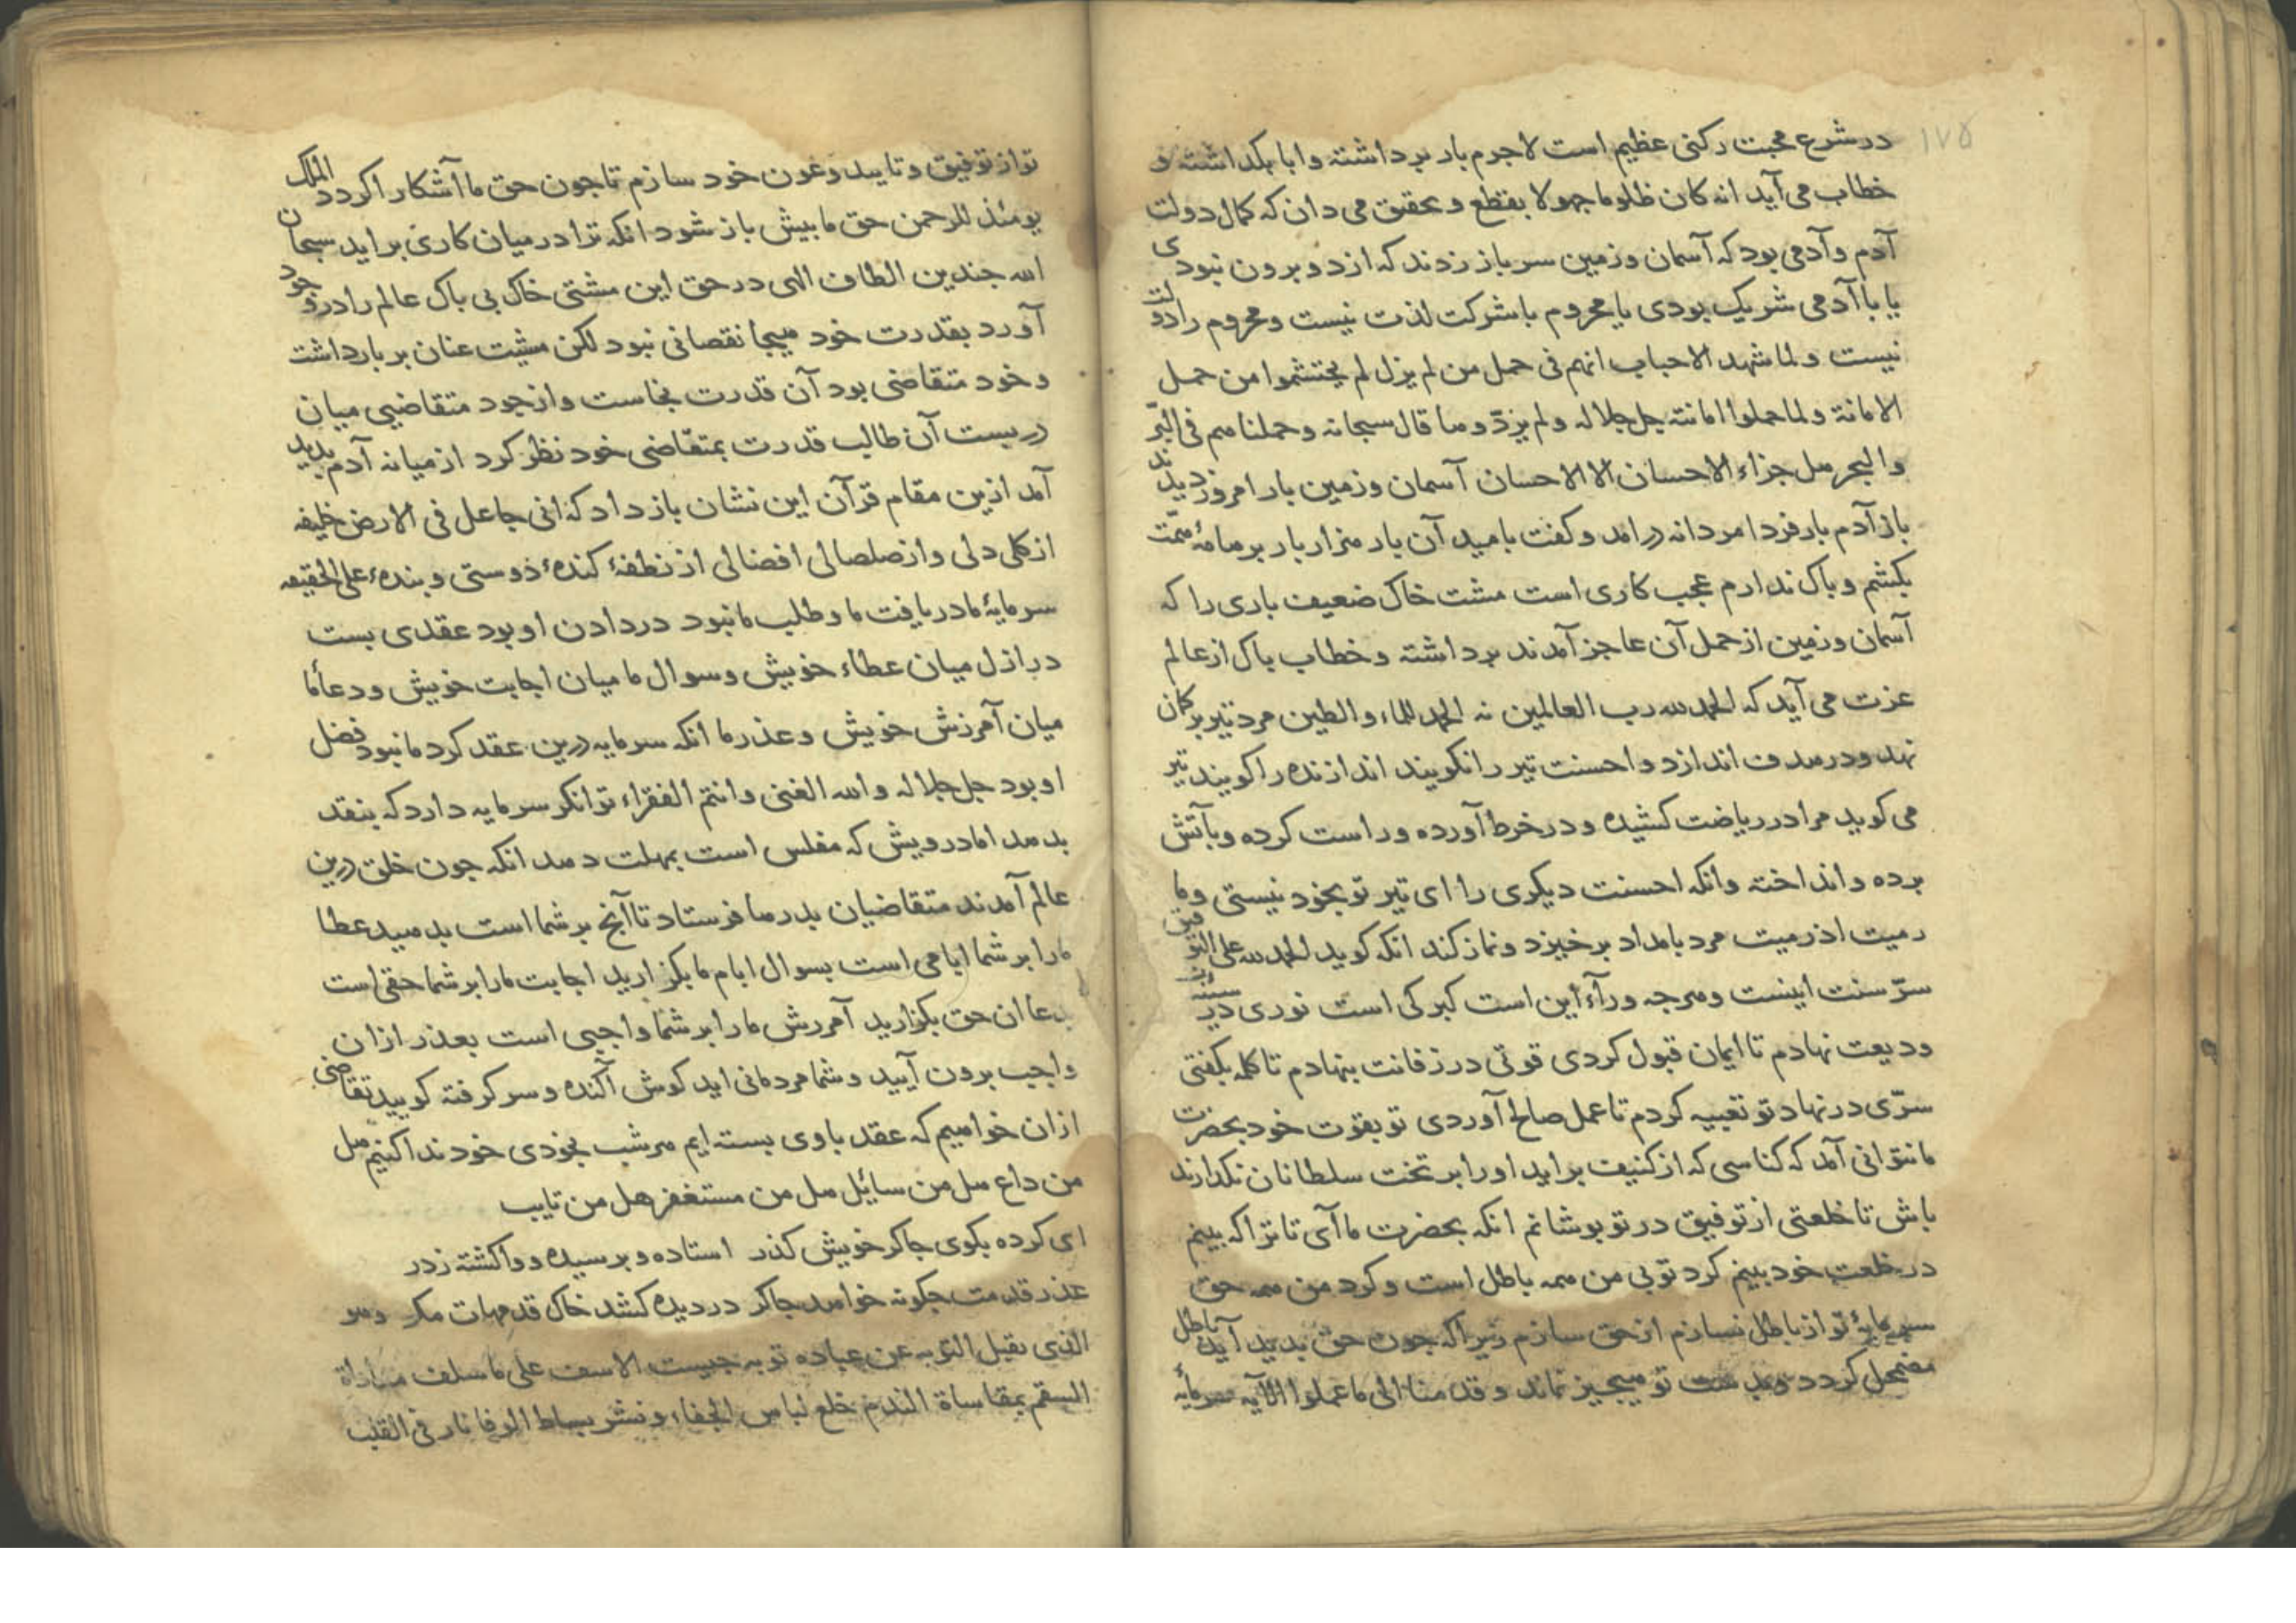 ۱۷۵
در شرع محبت رکنی عظیم است لاجرم بار برداشته و ابا بکداشته و
خطاب می آید انه کان ظلوما جهولا بقطع و تحقیق می دان که کمال دولت
آدم و آدمی بود که آسمان و زمین سر باز زدند که از دو برون نبودی
یا با آدمی شریک بودی یا محروم با شرکت لذت نیست و محروم را دولت
نیست و لما شهد الاحباب انهم فی حمل من لم یزل لم یحتشموا من حمل
الامانة و لما حملوا امانته جل جلاله و لم یزد و ما قال سبحانه و حملناهم فی البرّ
و البحر هل جزاء الاحسان الا الاحسان آسمان و زمین بار امروز دیدند
باز آدم بار فردا مردانه درامد و کفت بامید آن بار هزار بار بر هامهٔ همّت
بکشم و باک ندارم عجب کاری است مشت خاک ضعیف باری را که
آسمان و زمین از حمل آن عاجز آمدند برداشته و خطاب پاک از عالم
عزت می آید که الحمد لله رب العالمین نه الحمد للماء و الطین مرد تیر بر کمان
نهد و در هدف اندازد و احسنت تیر را نکویند اندازنده را کویند تیر
می کوید مرا در ریاضت کشیده و در خرط آورده و راست کرده و بآتش
برده و انداخته و انکه احسنت دیکری را ای تیر تو بخود نیستی و ما
رمیت اذ رمیت مرد بامداد برخیزد و نماز کند انکه کوید الحمد لله علی التوفیق
سرّ سنت اینست و هرجه ورآء این است کبرکی است نوری در سینه
ودیعت نهادم تا ایمان قبول کردی قوتی در زفانت بنهادم تا کلمه بکفتی
سرّی در نهاد تو تعبیه کردم تا عمل صالح آوردی تو بقوت خود بحضرت
ما نتوانی آمد که کناسی که از کنیف براید او را بر تخت سلطانان نکذارند
باش تا خلعتی از توفیق در تو پوشانم انکه بحضرت ما آی تا ترا که بینم
در خلعت خود بینم کرد تو بی من همه باطل است و کرد من همه حق
سرمایهٔ تو از باطل نسازم از حق سازم زیرا که جون حق بدید آید باطل
مضمحل کردد و بدست تو هیجیز نماند و قدمنا الی ما عملوا الآیه سرمایهٔ
تو از توفیق و تایید و عون خود سازم تا جون حق ما آشکارا کردد الملک
یومئذ للرحمن حق ما بیش باز شود انکه ترا در میان کاری براید سبحان
الله جندین الطاف الهی در حق این مشتی خاک بی باک عالم را در وجود
آورد بقدرت خود هیجا نقصانی نبود لکن مشیت عنان بر بار داشت
و خود متقاضی بود آن قدرت بخاست و از جود متقاضیی میان
در بست آن طالب قدرت بمتقاضی خود نظر کرد از میانه آدم بدید
آمد ازین مقام قرآن این نشان باز داد که انی جاعل فی الارض خلیفه
از کلی دلی و از صلصالی افضالی از نطفهٔ کندهٔ ذوستی و بندهٔ علی الحقیقه
سرمایهٔ ما دریافت ما و طلب ما نبود در دادن او بود عقدی بست
در ازل میان عطاء خویش و سوال ما میان اجابت خویش و دعا ما
میان آمرزش خویش و عذر ما انکه سرمایه درین عقد کرد ما نبود فضل
او بود جل جلاله و الله الغنی و انتم الفقراء توانکر سرمایه دارد که بنقد
بدهد اما درویش که مفلس است بمهلت دهد انکه جون خلق درین
عالم آمدند متقاضیان بدر ما فرستاد تا آنچ بر شما است بدهید عطا
ما را بر شما ایامی است بسوال ایام ما بکزارید اجابت ما را بر شما حقی است
بدعا ان حق بکزارید آمررش ما را بر شما واجبی است بعذر از ان
واجب برون آیید و شما مردمانی اید کوش آکنده و سر کرفته کویید تقاضی
از ان خواهیم که عقد با وی بسته ایم هر شب بخودی خود ندا کنیم هل
من داع هل من سائل هل من مستغفر هل من تایب
ای کرده بکوی جاکر خویش کذر استاده و برسیده و واکشته ز در
عذر قدمت جکونه خواهد جاکر در دیده کشد خاک قدمهات مکر و هو
الذی یقبل التوبه عن عباده توبه جیست الاسف علی ما سلف مداواة
السقم بمقاساة الندم خلع لباس الجفاء و نشر بساط الوفا نار فی القلب